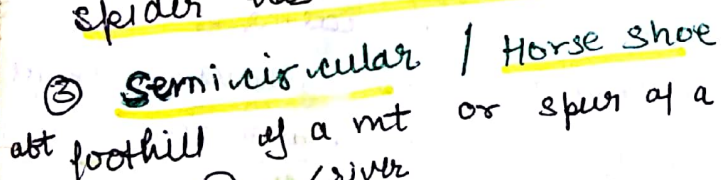 spider
③ Semicircular / Horse shoe
abt foothill of a mt or spur of a
river